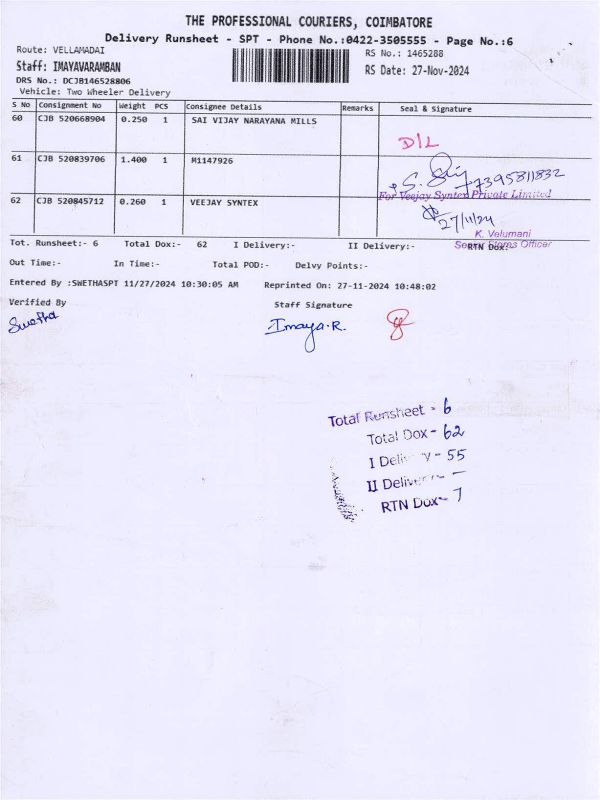 THE PROFESSIONAL COURIERS, COIMBATORE
Delivery Runsheet - SPT - Phone No.:0422-3505555 - Page No.:6
Route: VELLAMADAI
RS No.: 1465288
Staff: IMAYAVARAMBAN
RS Date: 27-Nov-2024
DRS No.: DCJB146528806
Vehicle: Two Wheeler Delivery
S No Consignment No Weight PCS Consignee Details Remarks Seal & Signature
60 CJB 520668904 0.250 1 SAI VIJAY NARAYANA MILLS
D/L
61 CJB 520839706 1.400 1 M1147926
7395811832
For Veejay Syntex Private Limited
62 CJB 520845712 0.260 1 VEEJAY SYNTEX
27/11/24
K. Velumani
Senior Stores Officer
Tot. Runsheet:- 6 Total Dox:- 62 I Delivery:- II Delivery:- RTN Dox:-
Out Time:- In Time:- Total POD:- Delvy Points:-
Entered By :SWETHASPT 11/27/2024 10:30:05 AM Reprinted On: 27-11-2024 10:48:02
Verified By Staff Signature
Swetha Imaya.R.
Total Runsheet - 6
Total Dox - 62
I Delivery - 55
II Delivery - —
RTN Dox - 7